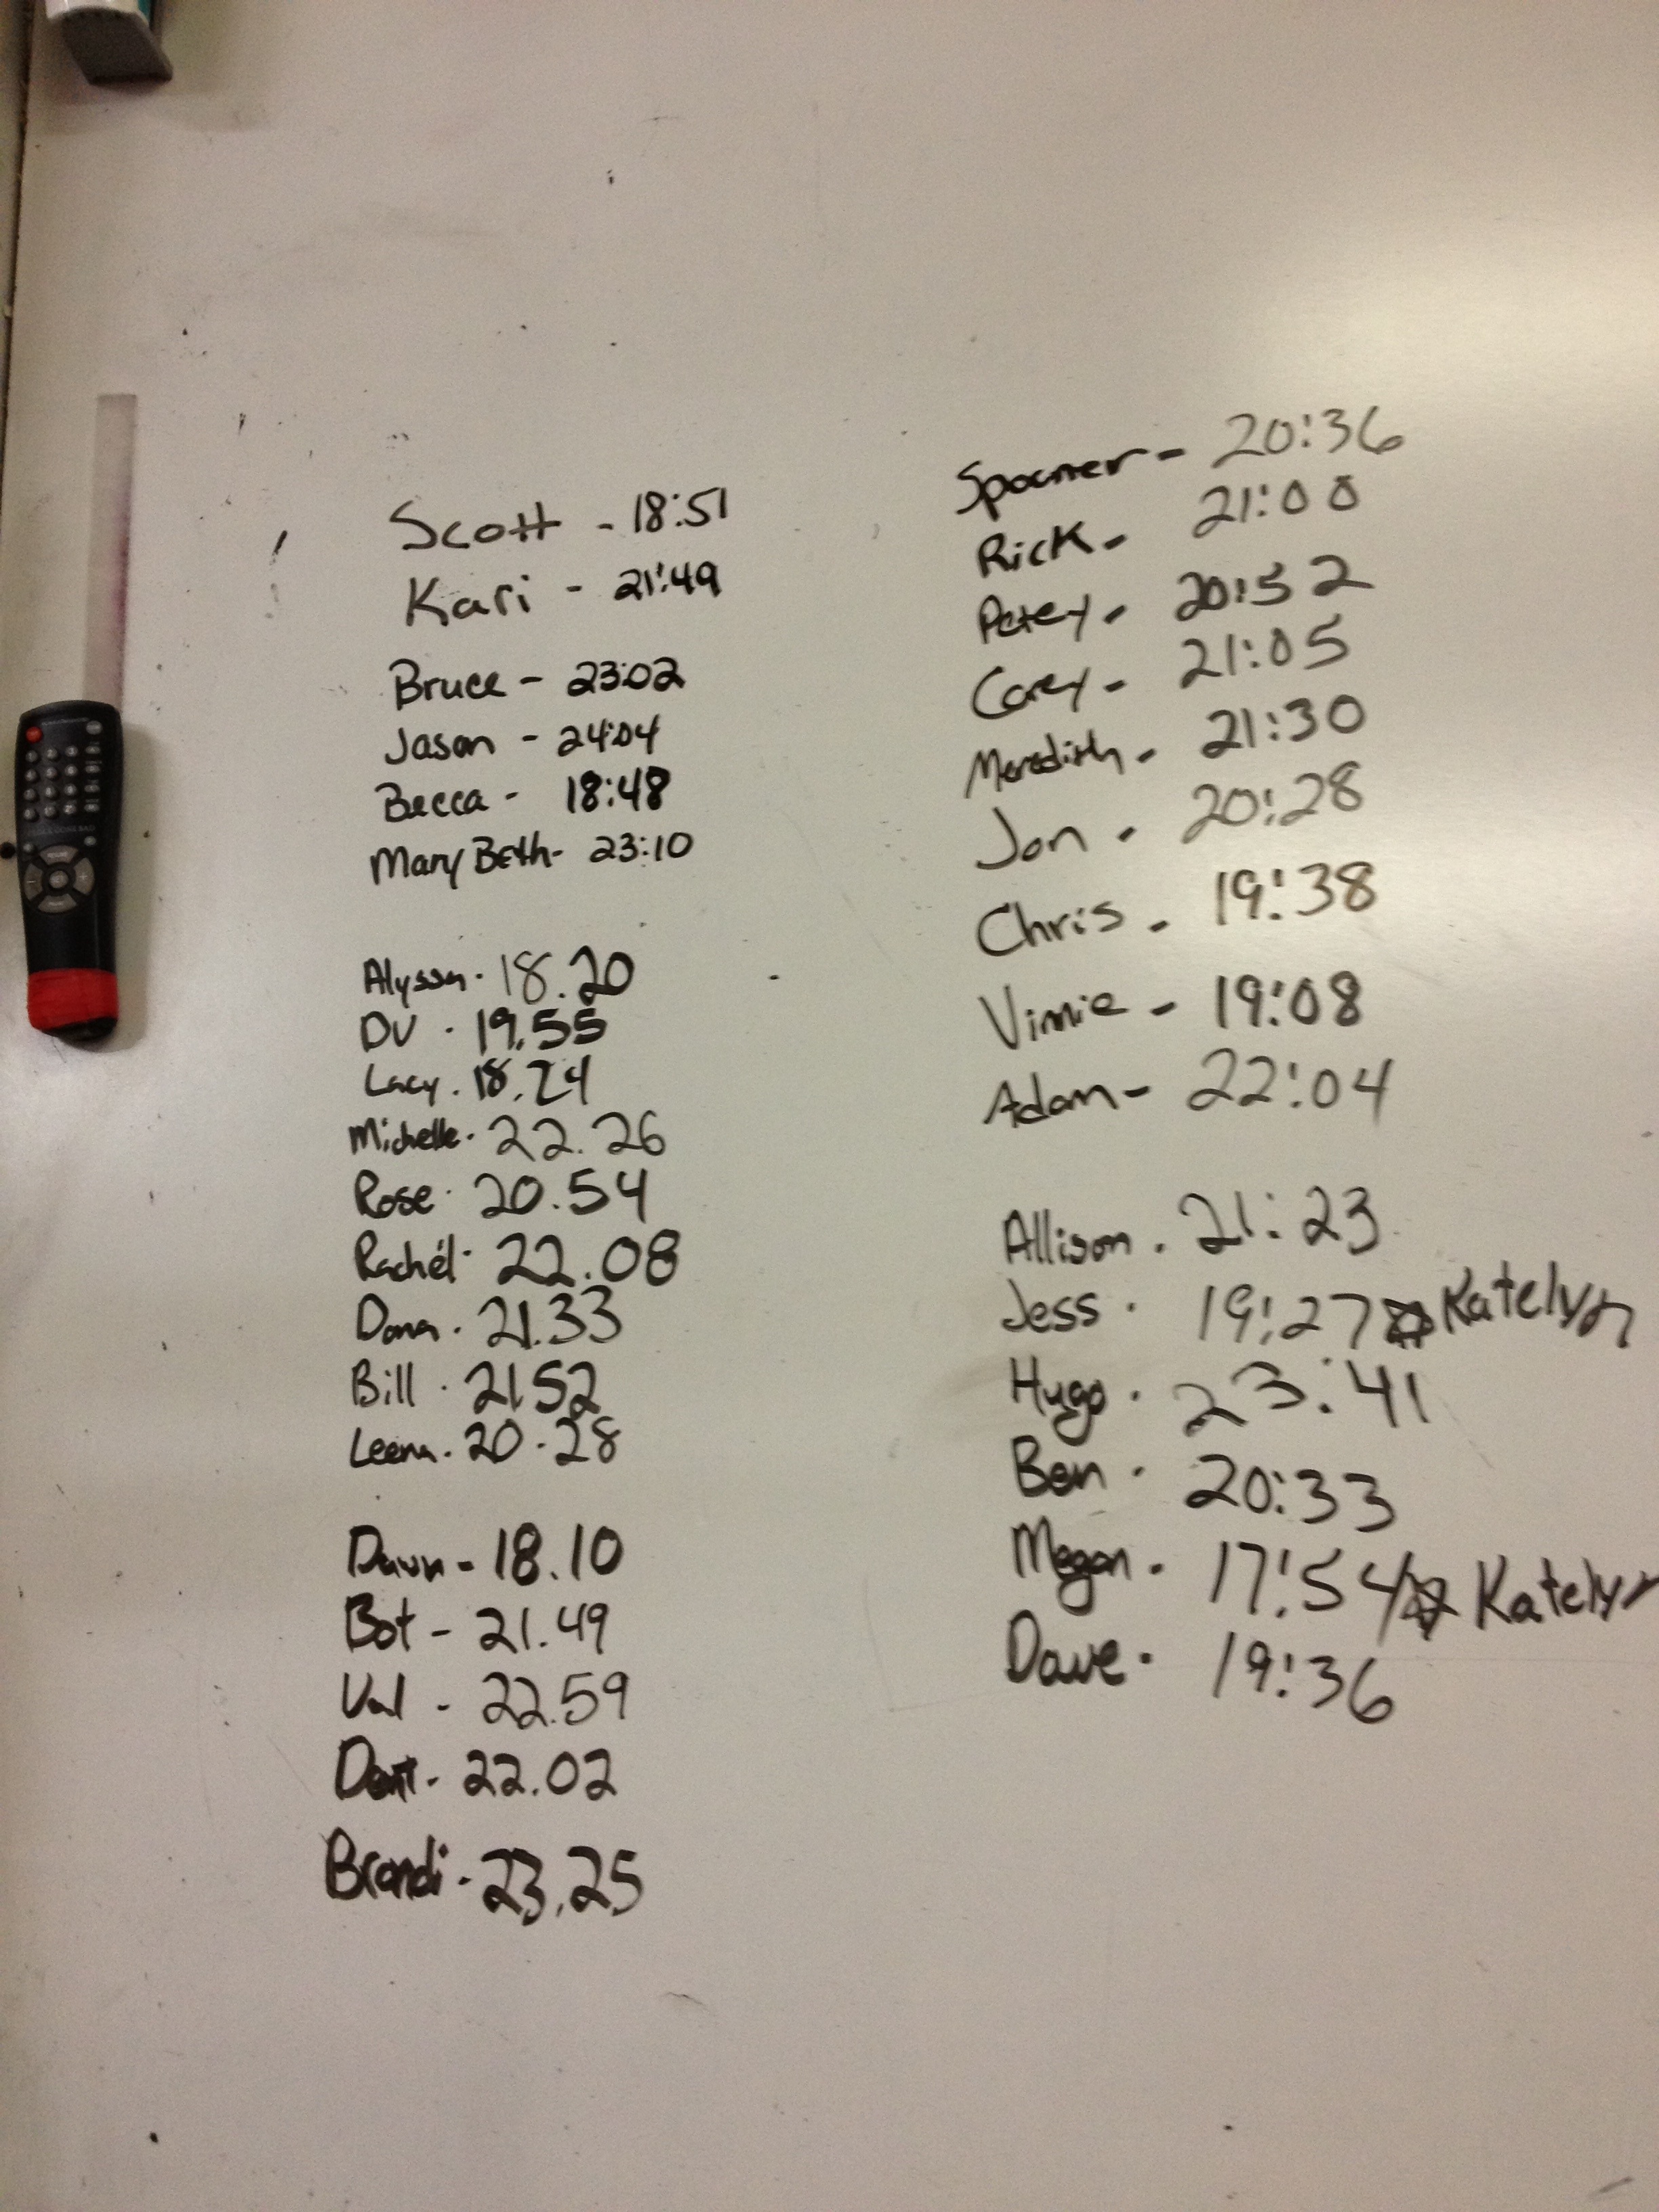 Scott - 18:51
Kari - 21:49
Bruce - 23:02
Jason - 24:04
Becca - 18:48
Mary Beth - 23:10
Alyssa - 18.20
DV - 19.55
Lacy - 18.24
Michelle - 22.26
Rose - 20.54
Rachel - 22.08
Dana - 21.33
Bill - 21 52
Leena - 20.28
Dawn - 18.10
Bot - 21.49
Val - 22.59
22.02
Brandi - 23.25
Spooner - 20:36
Rick - 21:00
Petey - 20:52
Corey - 21:05
Meredith - 21:30
Jon - 20:28
Chris - 19:38
Vinnie - 19:08
Adam - 22:04
Allison - 21:23
Jess - 19:27 ☆ Katelyn
Hugo - 23:41
Ben - 20:33
Megan - 17:54 ☆ Katelyn
Dave - 19:36